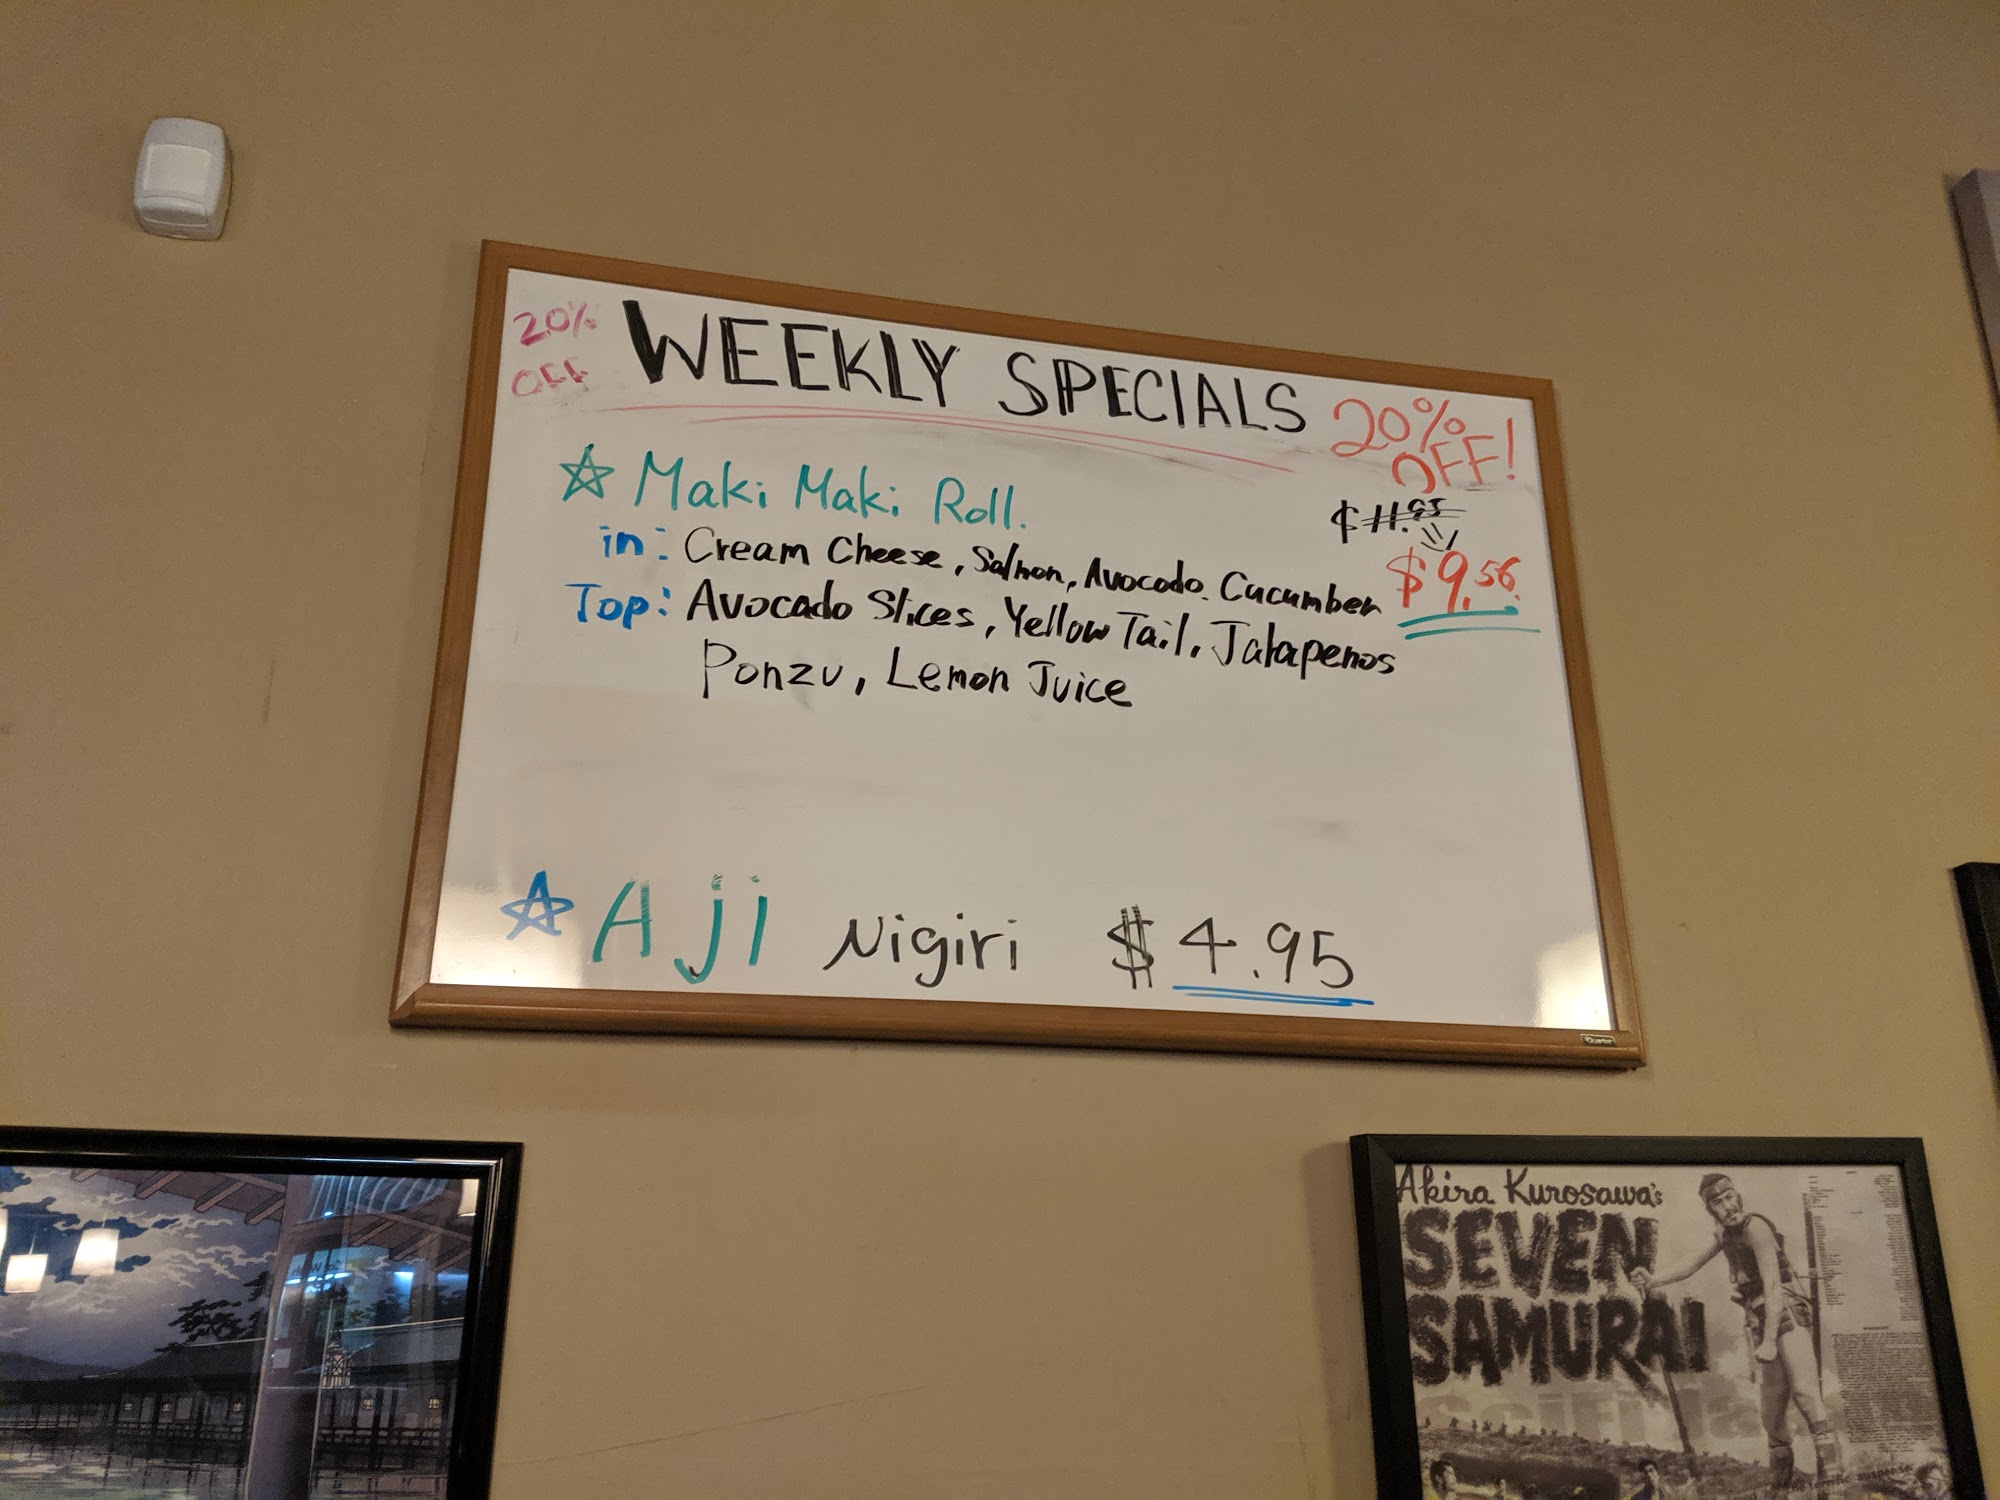 20%
OFF
WEEKLY SPECIALS
20%
OFF!
☆ Maki Maki Roll.
$11.95
in: Cream Cheese, Salmon, Avocado. Cucumber
$9.56
Top: Avocado Slices, Yellow Tail, Jalapenos
Ponzu, Lemon Juice
☆ Aji Nigiri $4.95
Quartet
Akira Kurosawa's
SEVEN
SAMURAI